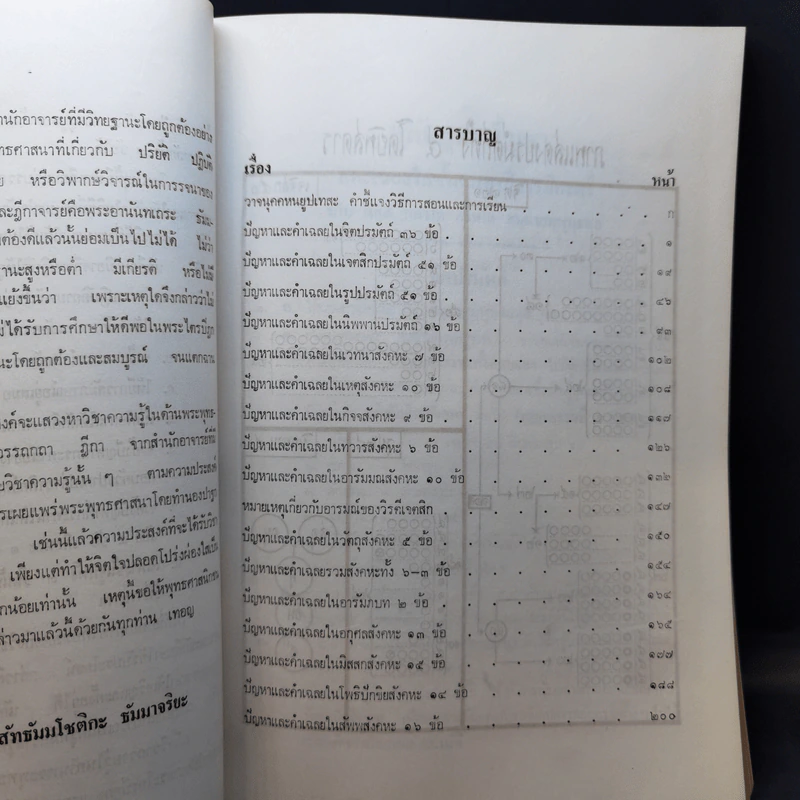 านักอาจารย์ที่มีวิทยฐานะโดยถูกต้องอย่าง
ทธศาสนาที่เกี่ยวกับ ปริยัติ ปฏิบัติ
หรือวิพากษ์วิจารณ์ในการรจนาของ
ละฎีกาจารย์คือพระอานันทเถระ ธัมม-
ต้องดีแล้วนั้นย่อมเป็นไปไม่ได้ ไม่ว่า
ฐานะสูงหรือต่ำ มีเกียรติ หรือไม่มี
แย้งขึ้นว่า เพราะเหตุใดจึงกล่าวว่าไม่
ไม่ได้รับการศึกษาให้ดีพอในพระไตรปิฎก
านะโดยถูกต้องและสมบูรณ์ จนแตกฉาน
งค์จะแสวงหาวิชาความรู้ในด้านพระพุทธ-
อรรถกถา ฎีกา จากสำนักอาจารย์ที่มี
ยวิชาความรู้นั้น ๆ ตามความประสงค์
รเผยแพร่พระพุทธศาสนาโดยทำนองปาฐก
เช่นนี้แล้วความประสงค์ที่จะได้รับวิชา
เพียงแต่ทำให้จิตใจปลอดโปร่งผ่องใสเป็น
กน้อยเท่านั้น เหตุนี้ขอให้พุทธศาสนิกชน
ล่าวมาแล้วนี้ด้วยกันทุกท่าน เทอญ
สัทธัมมโชติกะ ธัมมาจริยะ
สารบาญ
เรื่อง หน้า
วาจนุคคหนยูปเทสะ คำชี้แจงวิธีการสอนและการเรียน . . . . . ก
ปัญหาและคำเฉลยในจิตปรมัตถ์ ๓๖ ข้อ . . . . . . ๑
ปัญหาและคำเฉลยในเจตสิกปรมัตถ์ ๕๑ ข้อ . . . . . . ๑๙
ปัญหาและคำเฉลยในรูปปรมัตถ์ ๕๑ ข้อ . . . . . . ๔๖
ปัญหาและคำเฉลยในนิพพานปรมัตถ์ ๑๖ ข้อ . . . . . . ๙๓
ปัญหาและคำเฉลยในเวทนาสังคหะ ๗ ข้อ . . . . . . ๑๐๒
ปัญหาและคำเฉลยในเหตุสังคหะ ๑๐ ข้อ . . . . . . ๑๐๘
ปัญหาและคำเฉลยในกิจจสังคหะ ๙ ข้อ . . . . . . ๑๑๗
ปัญหาและคำเฉลยในทวารสังคหะ ๖ ข้อ . . . . . . ๑๒๖
ปัญหาและคำเฉลยในอารัมมณสังคหะ ๑๐ ข้อ . . . . . . ๑๓๒
หมายเหตุเกี่ยวกับอารมณ์ของวิรตีเจตสิก . . . . . . ๑๔๗
ปัญหาและคำเฉลยในวัตถุสังคหะ ๕ ข้อ . . . . . . ๑๕๐
ปัญหาและคำเฉลยรวมสังคหะทั้ง ๖-๓ ข้อ . . . . . . ๑๕๔
ปัญหาและคำเฉลยในอารัมภบท ๒ ข้อ . . . . . . ๑๖๔
ปัญหาและคำเฉลยในอกุศลสังคหะ ๑๓ ข้อ . . . . . . ๑๖๕
ปัญหาและคำเฉลยในมิสสกสังคหะ ๑๕ ข้อ . . . . . . ๑๗๗
ปัญหาและคำเฉลยในโพธิปักขิยสังคหะ ๑๔ ข้อ . . . . . . ๑๘๘
ปัญหาและคำเฉลยในสัพพสังคหะ ๑๖ ข้อ . . . . . . ๒๐๐